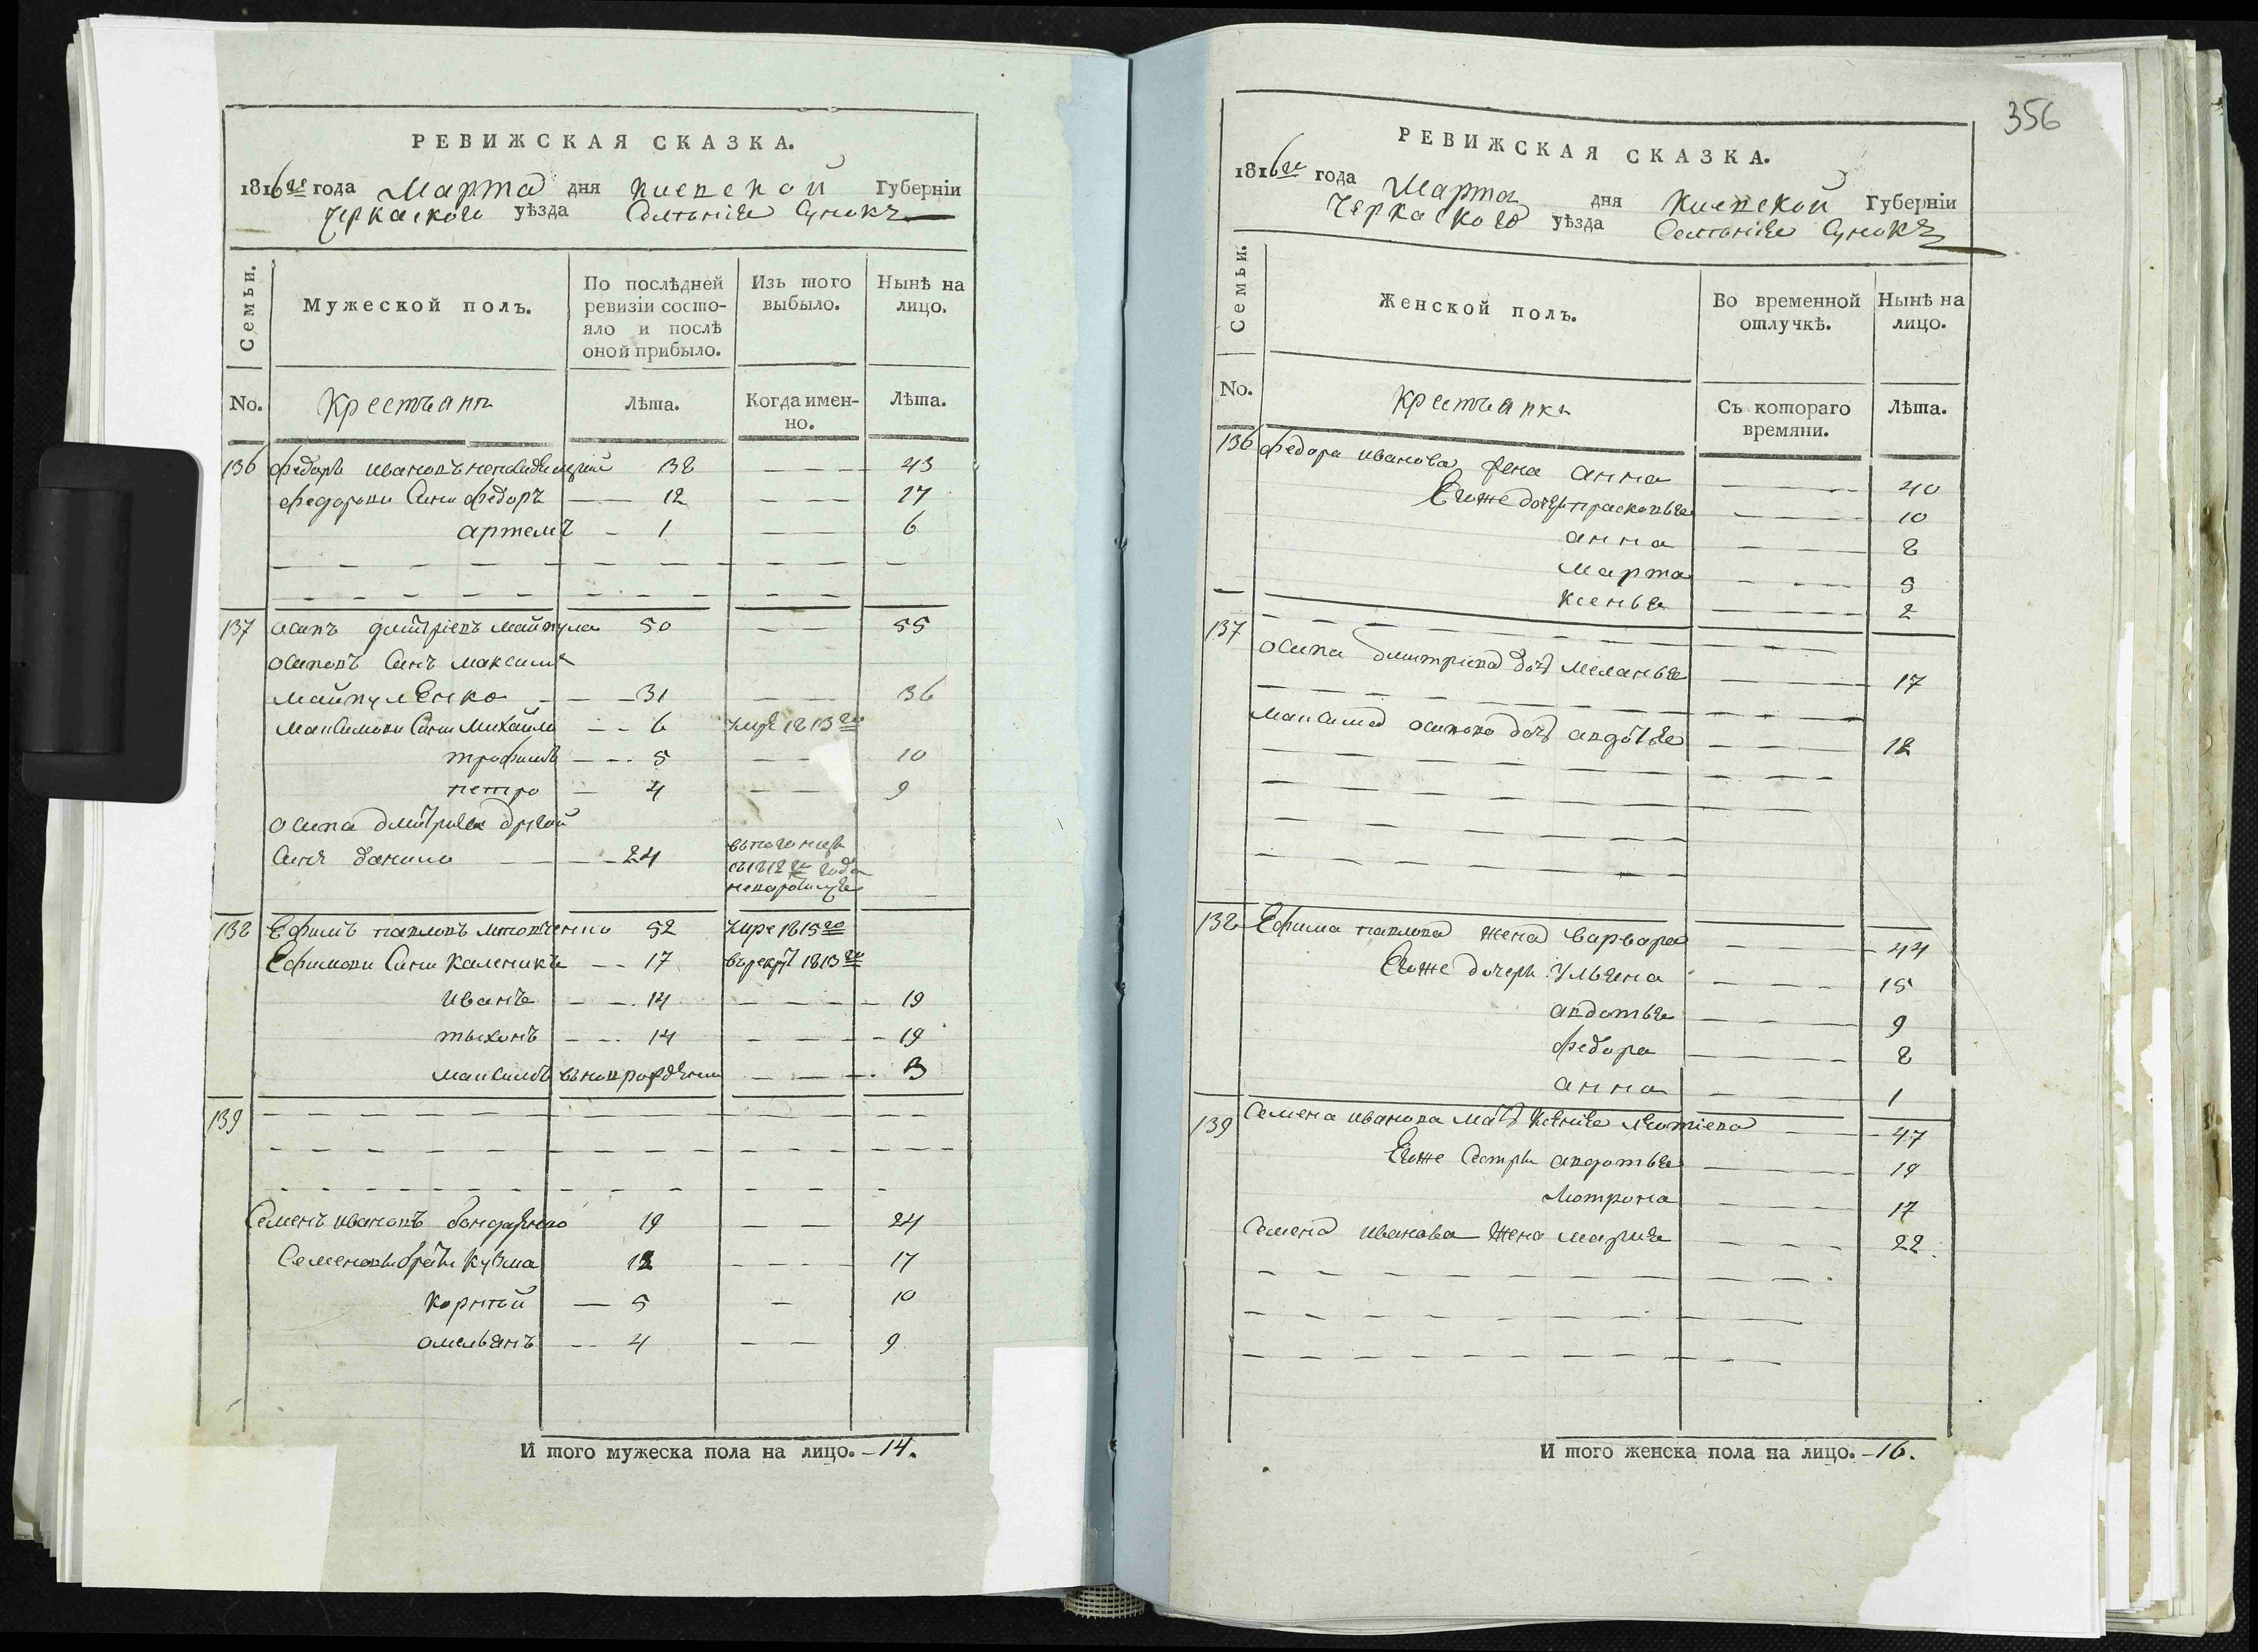 РЕВИЖСКАЯ СКАЗКА.
1816го года Марта дня Киевской Губерніи
Черкаского уѣзда Селѣнія Сунокъ
Семьи.
Мужеской полъ.
По послѣдней ревизіи состо-
яло и послѣ
оной прибыло.
Изъ того выбыло.
Нынѣ на лицо.
No.
Крестьянѣ
Лѣта.
Когда имен-
но.
Лѣта.
136 Федоръ Ивановъ 38 — 43
Федоровы Сини Федоръ — 12 — 17
артемъ — 1 — 6
137 Осипъ Дмитріевъ Майкула 50 — 55
Осиповъ Синъ Максимъ
Майкуленко — 31 — 36
Максимови Сини Михайло — 6 умре 1813го
трофимъ — 5 — 10
петро — 4 — 9
Осипа Дмитриева другой
Синъ данило — 24
съ 1812го года
138 Ефимъ павловъ 52 умре 1815го
Ефимови Сини Каленикъ — 17 въ рекрут 1813го
Иванъ — 14 — 19
тыхонъ — 14 — 19
Максимъ въновь рожденни — 3
139
Семенъ Ивановъ бондаренко 19 — 24
Семенови брати Кузма 12 — 17
Корнѣй — 5 — 10
омельянъ — 4 — 9
И того мужеска пола на лицо. — 14.
356
РЕВИЖСКАЯ СКАЗКА.
1816го года Марта дня Киевской Губерніи
Черкаского уѣзда Селѣнія Сунокъ
Семьи.
Женской полъ.
Во временной отлучкѣ.
Нынѣ на лицо.
No.
Крестьянки
Съ котораго
времяни.
Лѣта.
136 Федора Иванова жена Анна — 40
Егоже дочери прасковья — 10
анна — 8
Марта — 5
Ксенья — 2
137
Осипа Дмитриева дочь Меланья — 17
Максима осипова дочь авдотья — 12
138 Ефима павлова жена Варвара — 44
Егоже дочери Ульяна — 15
авдотья — 9
Федора — 8
анна — 1
139 Семена Иванова мать — 47
Егоже Сестри авдотья — 19
Мотрона — 17
Семена Иванова жена Мария — 22
И того женска пола на лицо. — 16.